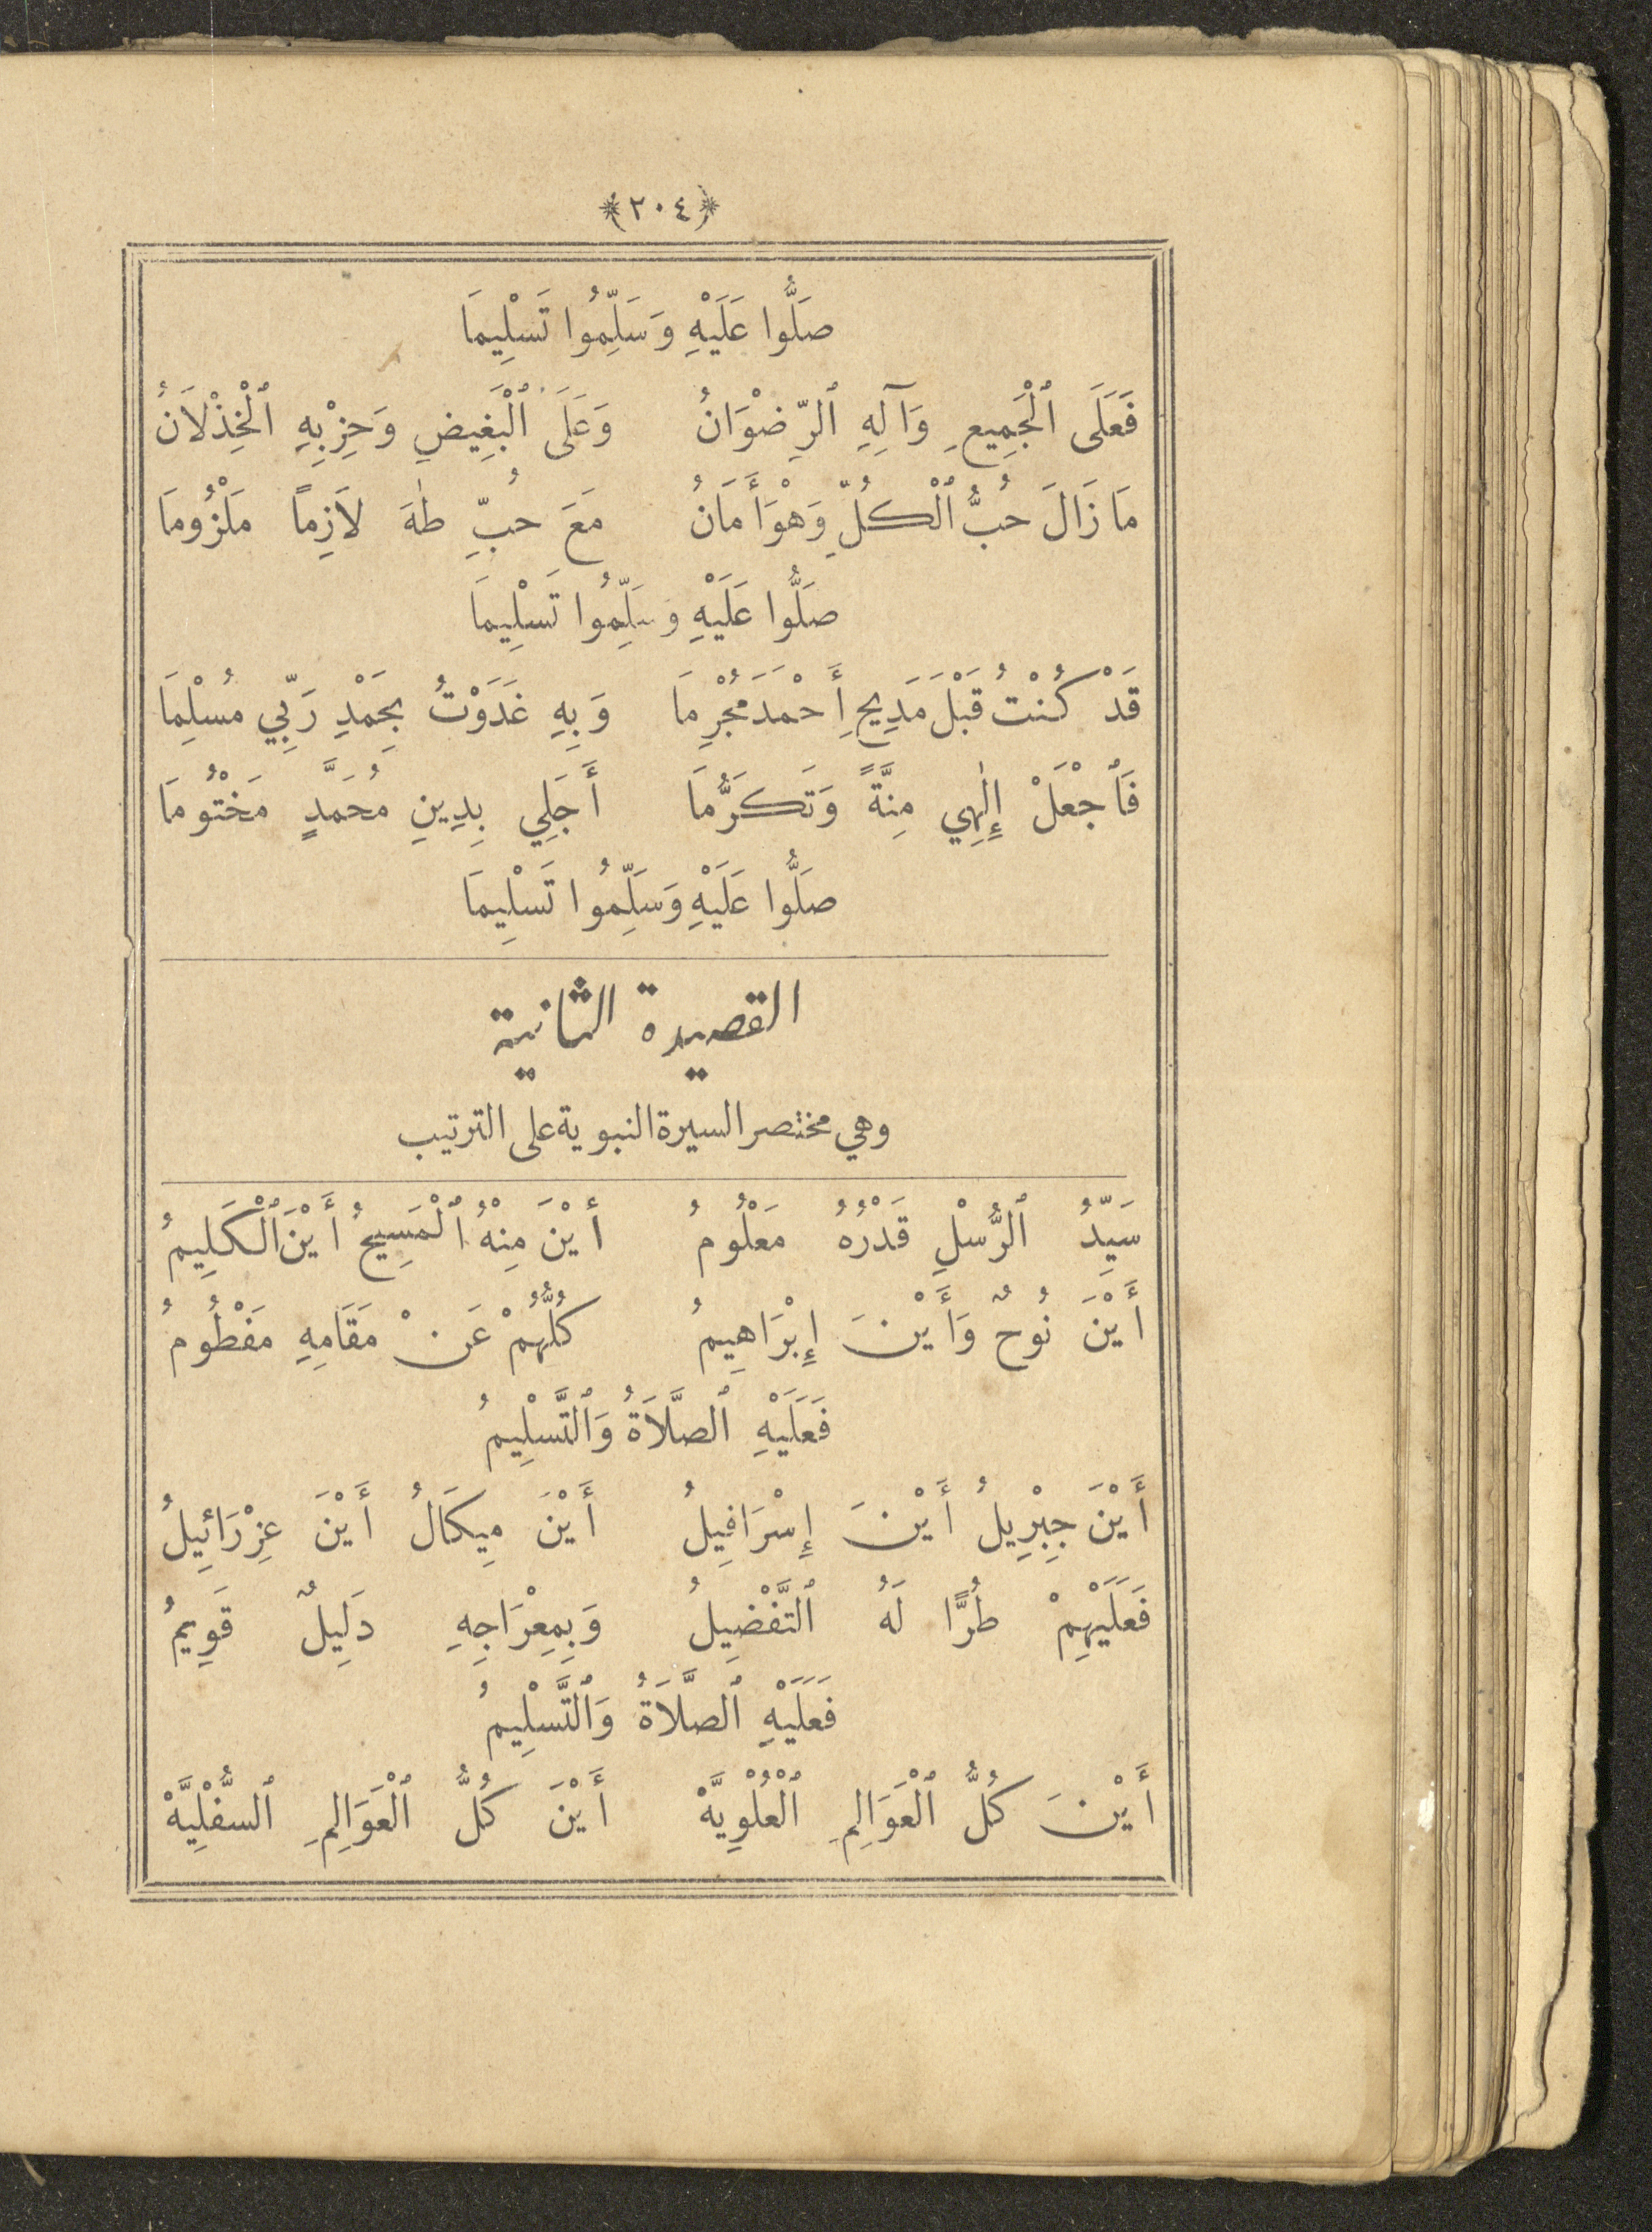 ﴿٢٠٤﴾
صَلُّوا عَلَيْهِ وَسَلِّمُوا تَسْلِيمَا
فَعَلَى ٱلْجَمِيعِ وَآلِهِ ٱلرِّضْوَانُ وَعَلَى ٱلْبَغِيضِ وَحِزْبِهِ ٱلْخِذْلَانُ
مَا زَالَ حُبُّ ٱلْكُلِّ وَهْوَ أَمَانُ مَعَ حُبِّ طٰهَ لاَزِماً مَلْزُومَا
صَلُّوا عَلَيْهِ وسَلِّمُوا تَسْلِيمَا
قَدْ كُنْتُ قَبْلَ مَدِيحِ أَحْمَدَ مُجْرِمَا وَبِهِ غَدَوْتُ بِحَمْدِ رَبِّي مُسْلِمَا
فَٱجْعَلْ إِلٰهِي مِنَّةً وَتَكَرُّمَا أَجَلِي بِدِينِ مُحَمَّدٍ مَخْتُومَا
صَلُّوا عَلَيْهِ وَسَلِّمُوا تَسْلِيمَا
القصيدة الثانية
وهي مختصر السيرة النبوية على الترتيب
سَيِّدُ ٱلرُّسْلِ قَدْرُهُ مَعْلُومُ أَيْنَ مِنْهُ ٱلْمَسِيحُ أَيْنَ ٱلْكَلِيمُ
أَيْنَ نُوحٌ وَأَيْنَ إِبْرَاهِيمُ كُلُّهُمْ عَنْ مَقَامِهِ مَفْطُومُ
فَعَلَيْهِ ٱلصَّلاَةُ وَٱلتَّسْلِيمُ
أَيْنَ جِبْرِيلُ أَيْنَ إِسْرَافِيلُ أَيْنَ مِيكَالُ أَيْنَ عِزْرَائِيلُ
فَعَلَيْهِمْ طُرًّا لَهُ ٱلتَّفْضِيلُ وَبِمِعْرَاجِهِ دَلِيلٌ قَوِيمُ
فَعَلَيْهِ ٱلصَّلاَةُ وَٱلتَّسْلِيمُ
أَيْنَ كُلُّ ٱلْعَوَالِمِ ٱلْعُلْوِيَّهْ أَيْنَ كُلُّ ٱلْعَوَالِمِ ٱلسُّفْلِيَّهْ